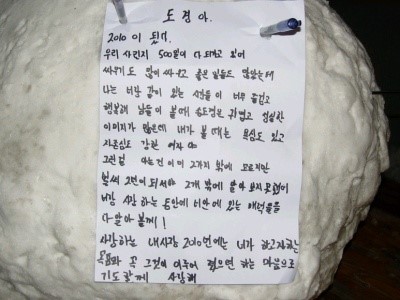 도경아.
2010이 됐다.
우리 사린지 500일이 다 되가고 있어
싸우기도 많이 싸우고 좋은 일들도 많았는데
나는 너랑 같이 있는 시간들이 너무 즐겁고
행복해 남들이 볼때 송도경은 귀엽고 성실한
이미지가 많은데 내가 볼때는 욕심도 있고
자존심도 강한 여자야
그런걸 아는건 이미 2가지 밖에 모르지만
벌써 2년이 되서야 2개 밖에 알아보지 못했어
너랑 사랑하는 동안에 너안에 있는 매력들을
다 알아 볼게!
사랑하는 내사랑 2010년에는 너가 하고자하는
목표와 꼭 그것이 이루어 졌으면 하는 마음으로
기도할게 사랑해